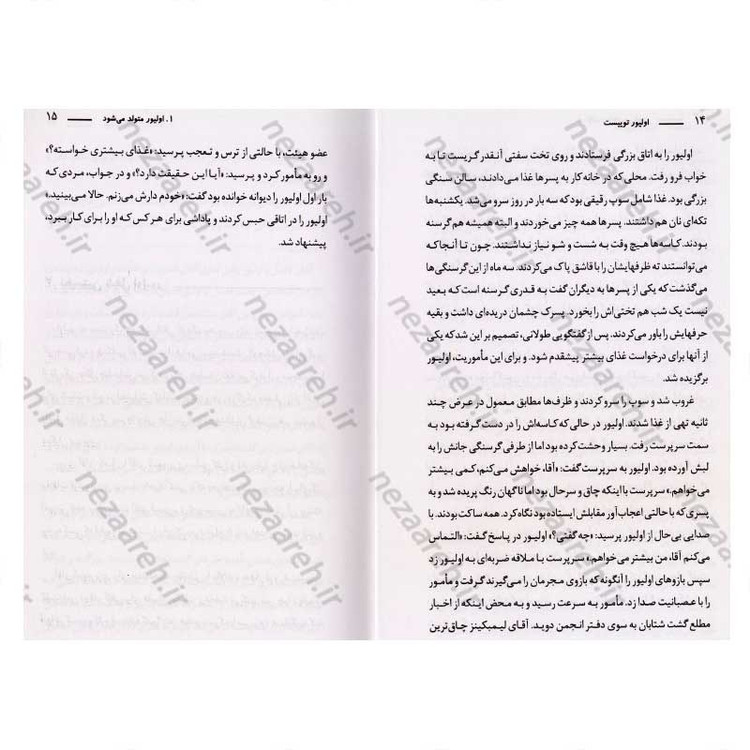 ۱۴ اولیور توییست
اولیور را به اتاق بزرگی فرستادند و روی تخت سفتی آنقدر گریست تا به
خواب فرو رفت. محلی که در خانه کار به پسرها غذا می‌دادند، سالن سنگی
بزرگی بود. غذا شامل سوپ رقیقی بود که سه بار در روز سرو می‌شد. یکشنبه‌ها
تکه‌ای نان هم داشتند. پسرها همه چیز می‌خوردند و البته همیشه هم گرسنه
بودند. کاسه‌ها هیچ وقت به شست و شو نیاز نداشتند. چون تا آنجا که
می‌توانستند ته ظرفهایشان را با قاشق پاک می‌کردند. سه ماه از این گرسنگی‌ها
می‌گذشت که یکی از پسرها به دیگران گفت به قدری گرسنه است که بعید
نیست یک شب هم تختی‌اش را بخورد. پسرک چشمان دریده‌ای داشت و بقیه
حرفهایش را باور می‌کردند. پس از گفتگویی طولانی، تصمیم بر این شد که یکی
از آنها برای درخواست غذای بیشتر پیشقدم شود. و برای این مأموریت، اولیور
برگزیده شد.
غروب شد و سوپ را سرو کردند و ظرف‌ها مطابق معمول در عرض چند
ثانیه تهی از غذا شدند. اولیور در حالی که کاسه‌اش را در دست گرفته بود به
سمت سرپرست رفت. بسیار وحشت کرده بود اما از طرفی گرسنگی جانش را به
لبش آورده بود. اولیور به سرپرست گفت: «آقا، خواهش می‌کنم، کمی بیشتر
می‌خواهم.» سرپرست با اینکه چاق و سرحال بود اما ناگهان رنگ پریده شد و به
پسری که با حالتی اعجاب‌آور مقابلش ایستاده بود نگاه کرد. همه ساکت بودند. با
صدایی بی‌حال از اولیور پرسید: «چه گفتی؟» اولیور در پاسخ گفت: «التماس
می‌کنم آقا، من بیشتر می‌خواهم.» سرپرست با ملاقه ضربه‌ای به اولیور زد
سپس بازوهای اولیور را آنگونه که بازوی مجرمان را می‌گیرند گرفت و مأمور
را با عصبانیت صدا زد. مأمور به سرعت رسید و به محض اینکه از اخبار
مطلع گشت شتابان به سوی دفتر انجمن دوید. آقای لیمبکینز چاق‌ترین
۱. اولیور متولد می‌شود ۱۵
عضو هیئت، با حالتی از ترس و تعجب پرسید: «غذای بیشتری خواسته؟»
و رو به مأمور کرد و پرسید: «آیا این حقیقت دارد؟» و در جواب، مردی که
بار اول اولیور را دیوانه خوانده بود گفت: «خودم دارش می‌زنم. حالا می‌بینید.»
اولیور را در اتاقی حبس کردند و پاداشی برای هر کس که او را برای کار ببرد،
پیشنهاد شد.
nezaareh.ir